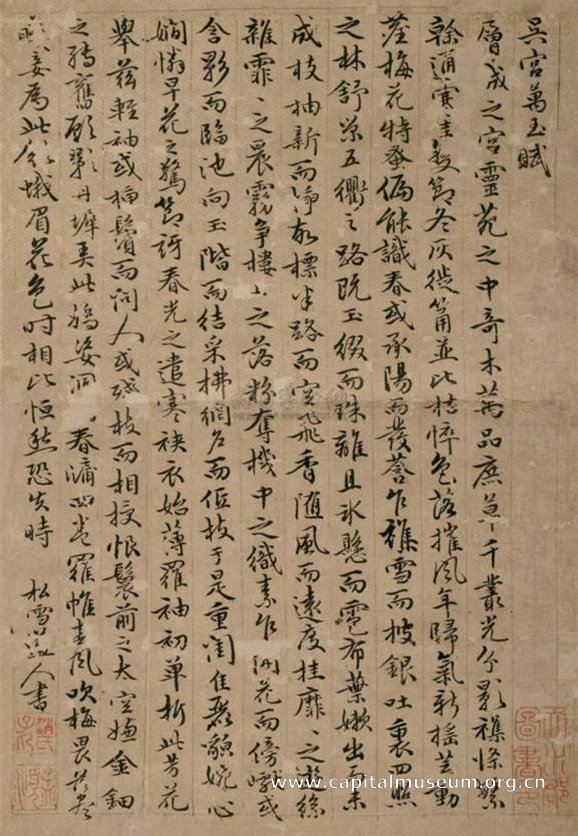 吳宮萬玉賦
層城之宮靈苑之中奇木萬品庶草千叢光分影雜條繁
幹通寒圭變節冬灰徙筩並比枯悴色落摧風年歸氣新搖芸動
塵梅花特蚤偏能識春或承陽而發荅乍雜雪而披銀吐裏四照
之林舒榮五衢之路既玉綴而珠離且冰懸而雹布葉嫩出而未
成枝抽新而故標半路而空飛香随風而遠度挂靡々之遊絲
雜霏々之晨霧爭樓上之落粉奪機中之織素乍開花而傍巘或
含影而臨池向玉階而結采拂網戶而低枝于是重閨佳麗貌婉心
嫻憐早花之驚節訝春光之遣寒裌衣始薄羅袖初單折此芳花
舉茲輕袖或插鬢而問人或殘枝而相授恨鬟前之太空嫌金鈿
之轉舊顧影丹墀弄此嬌姿洞開春牖四卷羅帷春風吹梅畏落盡
賤妾為此斂蛾眉花色時相比恒愁恐失時 松雪道人書
天水郡圖書印
www.capitalmuseum.org.cn